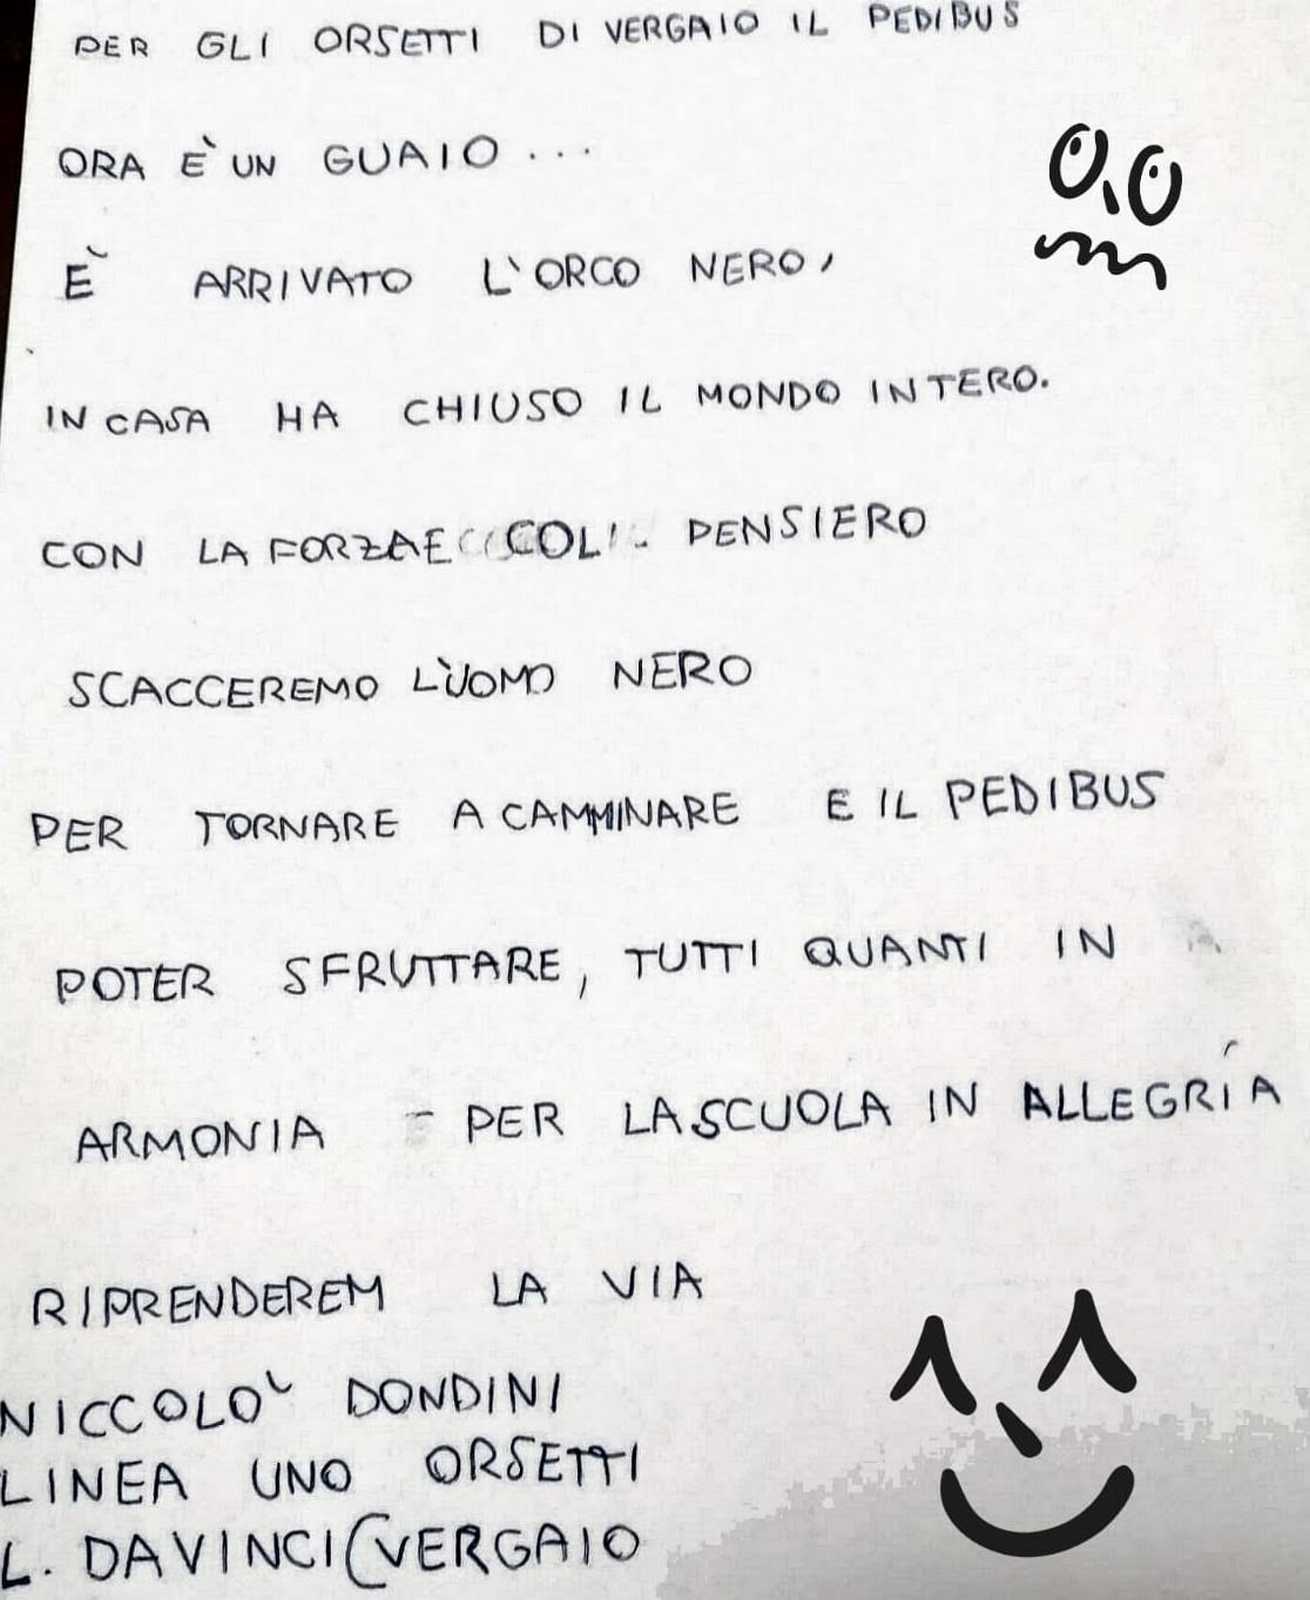 PER GLI ORSETTI DI VERGAIO IL PEDIBUS
ORA È UN GUAIO...
È ARRIVATO L'ORCO NERO,
IN CASA HA CHIUSO IL MONDO INTERO.
CON LA FORZA E COL PENSIERO
SCACCEREMO L'UOMO NERO
PER TORNARE A CAMMINARE E IL PEDIBUS
POTER SFRUTTARE, TUTTI QUANTI IN
ARMONIA - PER LA SCUOLA IN ALLEGRÍA
RIPRENDEREM LA VIA
NICCOLO' DONDINI
LINEA UNO ORSETTI
L. DA VINCI (VERGAIO